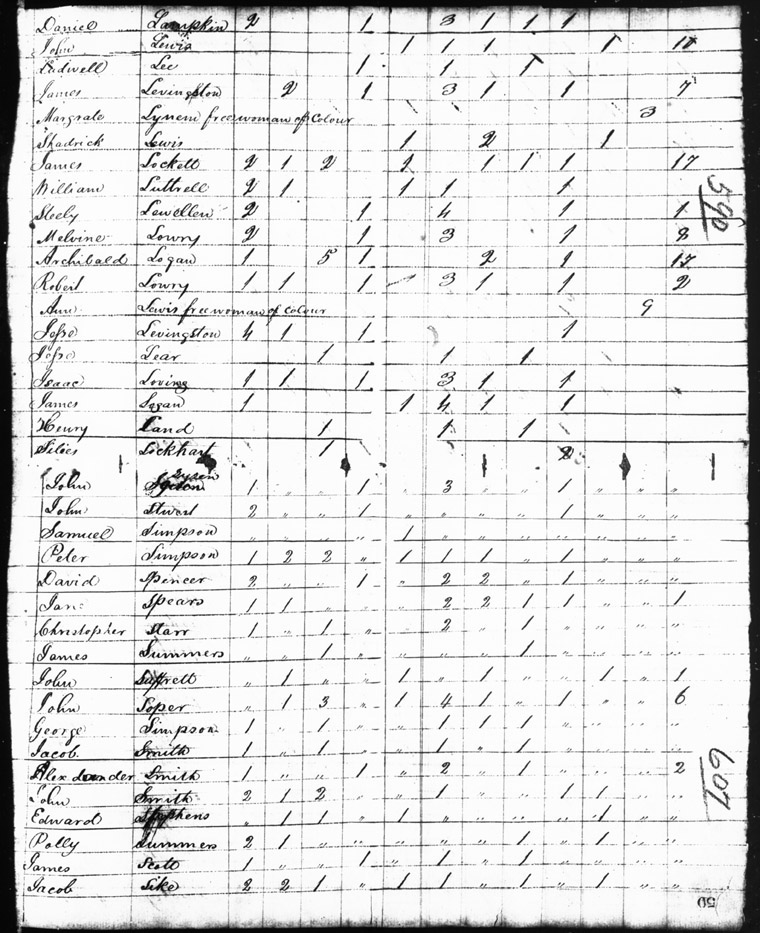 Daniel Lampkin 2 1 3 1 1 1
John Lewis 1 1 1 1 17
Ludwell Lee 1 1 1
James Levingston 2 1 3 1 1 7
Margrate Lynem free woman of Colour 3
Shadrick Lewis 1 2 1
James Lockett 2 1 2 2 1 1 1 17
William Luttrell 2 1 1 1 1
Steely Lewellen 2 1 4 1 1
590
Melvine Lowry 2 1 3 1 8
Archibald Logan 1 5 1 2 1 17
Robert Lowry 1 1 1 1 3 1 1 2
Ann Lewis free woman of Colour 9
Jesse Levingston 4 1 1 1
Jesse Lear 1 1 1
Isaac Loving 1 1 1 3 1 1
James Logan 1 1 4 1 1
Henry Land 1 1 1
Lockhart 1 2
John 1 " " 1 " 3 " " 1 " " "
John Stwert 2 " " 1 " " " " 1 " " "
Samuel Simpson " " " " 1 " " " " " " "
Peter Simpson 1 2 2 " 1 1 1 " 1 " " "
David Spencer 2 " " 1 " 2 2 " 1 " " "
Jane Spears 1 1 " " " 2 2 1 1 " " 1
Christopher Starr 1 " 1 " " 2 " 1 " " " "
James Summers " " 1 " " " " 1 " " " "
John Suffrett " 1 " " 1 " 1 " " 1 " 1
John Soper " 1 3 " 1 4 1 " 1 " " 6
George Simpson 1 " 1 " " 1 1 1 " " " "
Jacob Smith 1 " 1 " " 1 " 1 " " " "
607
Alexander Smith 1 " " 1 " 2 " 1 " " " 2
John Smith 2 1 2 " " 1 " " 1 1 " "
Edward Stephens " 1 1 " 1 " " " " 1 " "
Polly Summers 2 1 " " " " " 1 1 " " "
James Scott 1 " " 1 " 1 " 1 " " " "
Jacob Sike 2 2 1 " 1 1 " 1 " 1 " "
50